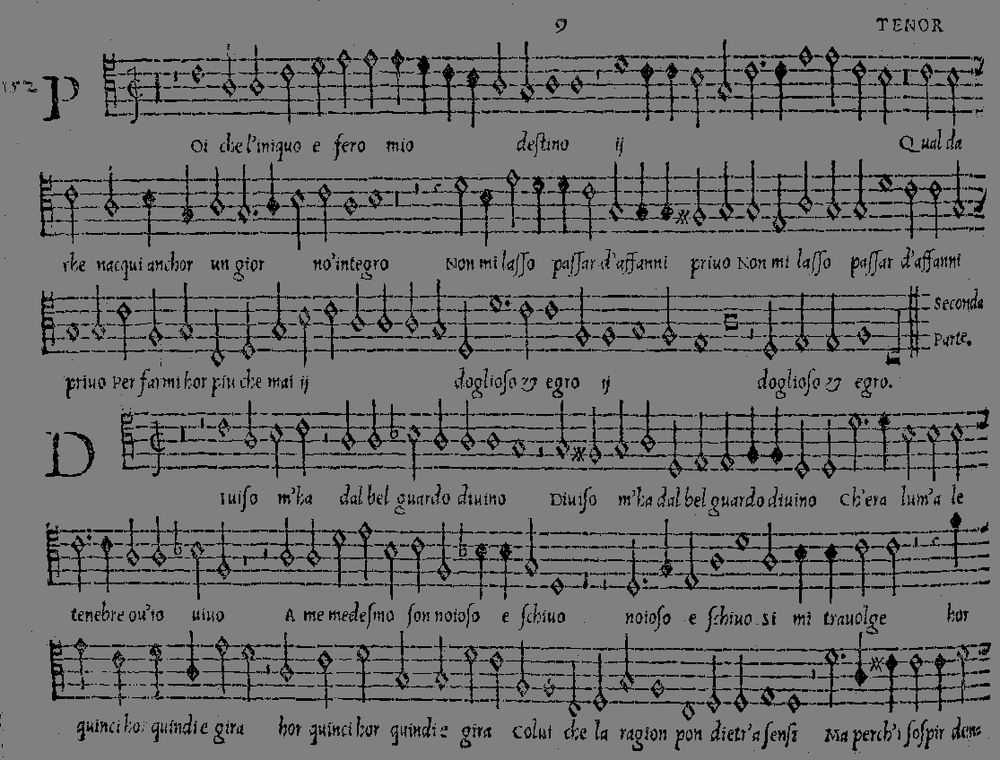 9 TENOR
P
Oi che l'iniquo e fero mio destino ij Qual da
che nacqui anchor un gior no'integro Non mi lasso passar d'affanni priuo Non mi lasso passar d'affanni
priuo Per farmi hor piu che mai ij doglioso & egro ij doglioso & egro.
Seconda
Parte.
D
Iuiso m'ha dal bel guardo diuino Diuiso m'ha dal bel guardo diuino Ch'era lum'a le
tenebre ou'io uiuo A me medesmo son noioso e schiuo noioso e schiuo si mi trauolge hor
quinci hor quindi e gira hor quinci hor quindi e gira Colui che la ragion pon dietr'a sensi Ma perch'i sospir